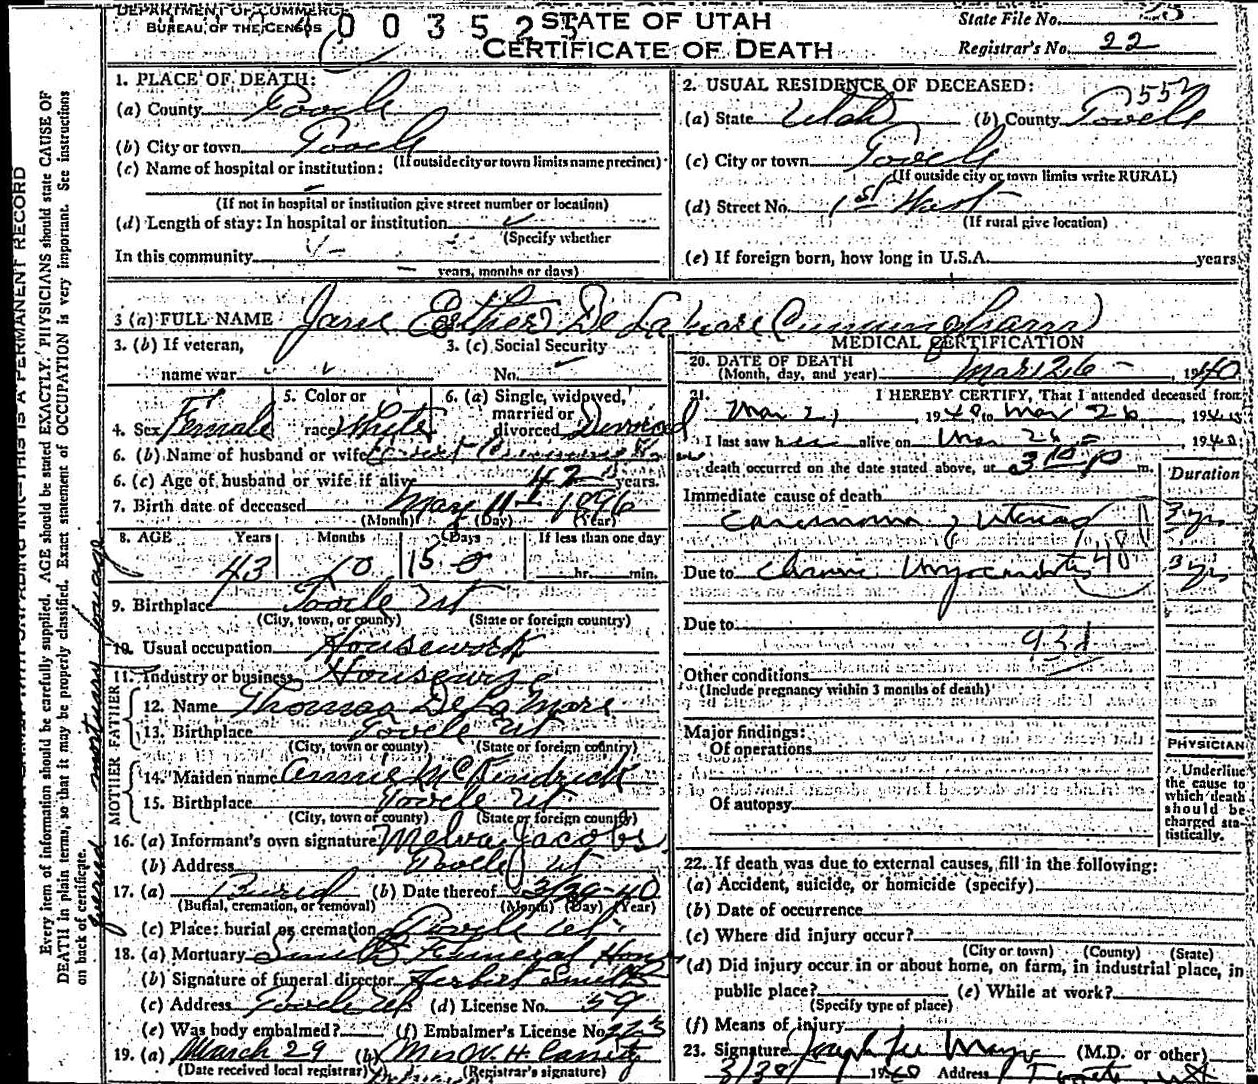 DEPARTMENT OF COMMERCE
BUREAU OF THE CENSUS
STATE OF UTAH
CERTIFICATE OF DEATH
State File No.
Registrar's No. 22
1. PLACE OF DEATH:
(a) County Tooele
(b) City or town Tooele
(If outside city or town limits name precinct)
(c) Name of hospital or institution:
(If not in hospital or institution give street number or location)
(d) Length of stay: In hospital or institution
(Specify whether
In this community
years, months or days)
2. USUAL RESIDENCE OF DECEASED:
(a) State Utah (b) County Tooele
(c) City or town Tooele
(If outside city or town limits write RURAL)
(d) Street No. 1st West
(If rural give location)
(e) If foreign born, how long in U.S.A. years
3 (a) FULL NAME Jane Esther De La Mare (Cunningham)
3. (b) If veteran,
name war
3. (c) Social Security
No.
4. Sex Female
5. Color or
race White
6. (a) Single, widowed,
married or
divorced Divorced
6. (b) Name of husband or wife
6. (c) Age of husband or wife if alive 42 years.
7. Birth date of deceased May 11 1896
(Month) (Day) (Year)
8. AGE Years Months Days If less than one day
43 10 15 hr. min.
9. Birthplace Tooele Ut
(City, town, or county) (State or foreign country)
10. Usual occupation Housework
11. Industry or business Housewife
FATHER
12. Name Thomas De La Mare
13. Birthplace Tooele Ut
(City, town or county) (State or foreign country)
MOTHER
14. Maiden name Annie McKendrick
15. Birthplace Tooele Ut
(City, town or county) (State or foreign country)
16. (a) Informant's own signature Melva Jacobs
(b) Address Tooele Ut
17. (a) Burial (b) Date thereof 3/30-40
(Burial, cremation, or removal) (Month) (Day) (Year)
(c) Place: burial or cremation Tooele Ut.
18. (a) Mortuary Smith Funeral Home
(b) Signature of funeral director Herbert Smith
(c) Address Tooele Ut (d) License No. 59
(e) Was body embalmed? (f) Embalmer's License No. 223
19. (a) March 29 (b) Mrs W. H. Cassity
(Date received local registrar) (Registrar's signature)
MEDICAL CERTIFICATION
20. DATE OF DEATH
(Month, day, and year) Mar 26 - , 1940
21. I HEREBY CERTIFY, That I attended deceased from
Mar 21, 1940 to Mar 26, 1940
I last saw her alive on Mar 26 1940
death occurred on the date stated above, at 3 10 p m.
Duration
Immediate cause of death
Carcinoma of Uterus 48 3 yrs
Due to Chronic Myocarditis 3 yrs
Due to
93d
Other conditions
(Include pregnancy within 3 months of death)
Major findings:
Of operations
Of autopsy
PHYSICIAN
Underline
the cause to
which death
should be
charged sta-
tistically.
22. If death was due to external causes, fill in the following:
(a) Accident, suicide, or homicide (specify)
(b) Date of occurrence
(c) Where did injury occur?
(City or town) (County) (State)
(d) Did injury occur in or about home, on farm, in industrial place, in
public place? (e) While at work?
(Specify type of place)
(f) Means of injury
23. Signature Joseph Lee (M.D. or other)
1940 Address
Every item of information should be carefully supplied. AGE should be stated EXACTLY. PHYSICIANS should state CAUSE OF
DEATH in plain terms, so that it may be properly classified. Exact statement of OCCUPATION is very important. See instructions
on back of certificate.
THIS IS A PERMANENT RECORD